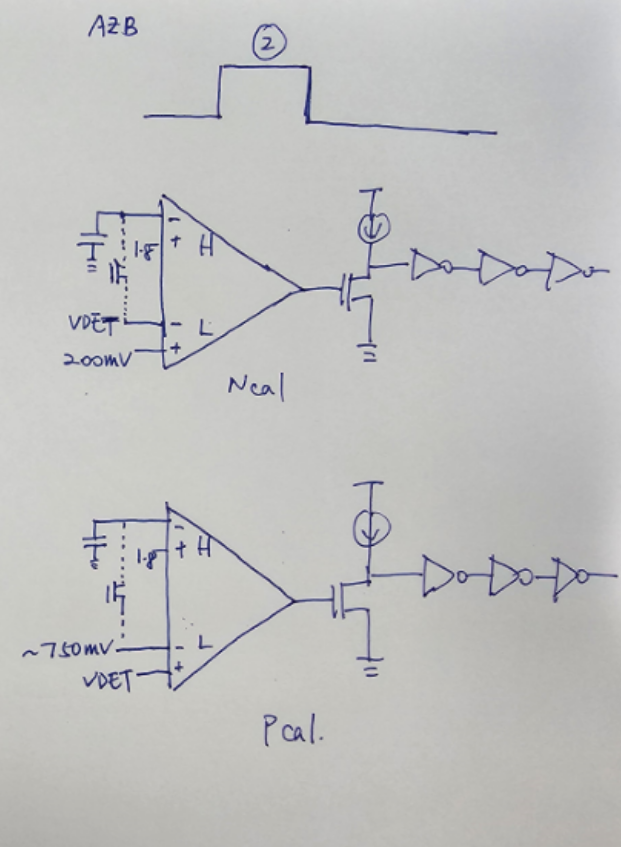 AZB
②
-
+ H
1.8
VDET - L
200mV +
Ncal
-
+ H
1.8
~750mV - L
VDET +
Pcal.